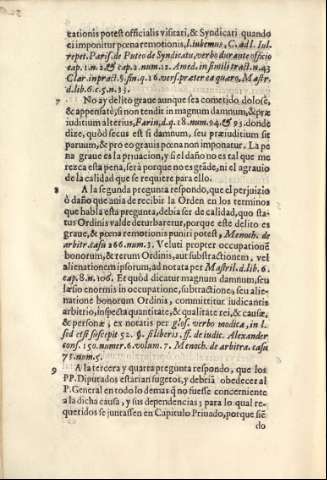 cationis potest officialis visitati, & Syndicati quando
ei imponitur pœna remotionis, l. iubemus, C. ad l. Iul.
repet. Paris. de Puteo de Syndicatu, verbo durante officio
cap. 1. n. 2. & cap. 2. num. 1. Amed. in simili tract. n. 43
Clar. in pract. §. fin. q. 26. vers. præterea quaro, Mastr.
d. lib. 6. c. 5. n. 33.
7 No ay delito graue aunque sea cometido dolosè,
& appensatè, si non tendit in magnum damnum, & præ
iudicium alterius, Farin. d. q. 18. num. 94. & 93. donde
dize, quòd secus est si damnum, seu præiudicium sit
paruum, & pro eo grauis pœna non imponatur. La pe
na graue es la priuacion, y si el daño no es tal que me
rezca esta pena, serà porque no es gräde, ni el agrauio
de la calidad que se requiere para ello.
8 A la segunda pregunta respondo, que el perjuizio
ò daño que ania de recibir la Orden en los terminos
que habla esta pregunta, debia ser de calidad, quo sta-
tus Ordinis valde deturbaretur, porque este delito es
graue, & pœna remotionis puniri potest, Menoch. de
arbitr. casu 266. num. 3. Veluti propter occupationē
bonorum, & rerum Ordinis, aut substractionem, vel
alienationem ipsorum, ad notata per Mastril. d. lib. 6.
cap. 8. n. 106. Et quòd dicatur magnum damnum, seu
læsio enormis in occupatione, subtractione, seu alie-
natione bonorum Ordinis, committitur iudicantis
arbitrio, inspecta quantitate, & qualitate rei, & causæ,
& personæ, ex notatis per glos. verbo modica, in l.
sed etsi suscepit 52. §. si liberis. ff. de iudic. Alexander
cons. 150. numer. 6. volum. 7. Menoch. de arbitra. casu
75. num. 5.
9 A la tercera y quarta pregunta respondo, que los
PP. Diputados estarian sugetos, y debriā obedecer al
P. General en todo lo demas q̄ no fuesse concerniente
a la dicha causa, y sus dependencias; para lo qual re-
queridos se juntassen en Capitulo Priuado, porque siē
do